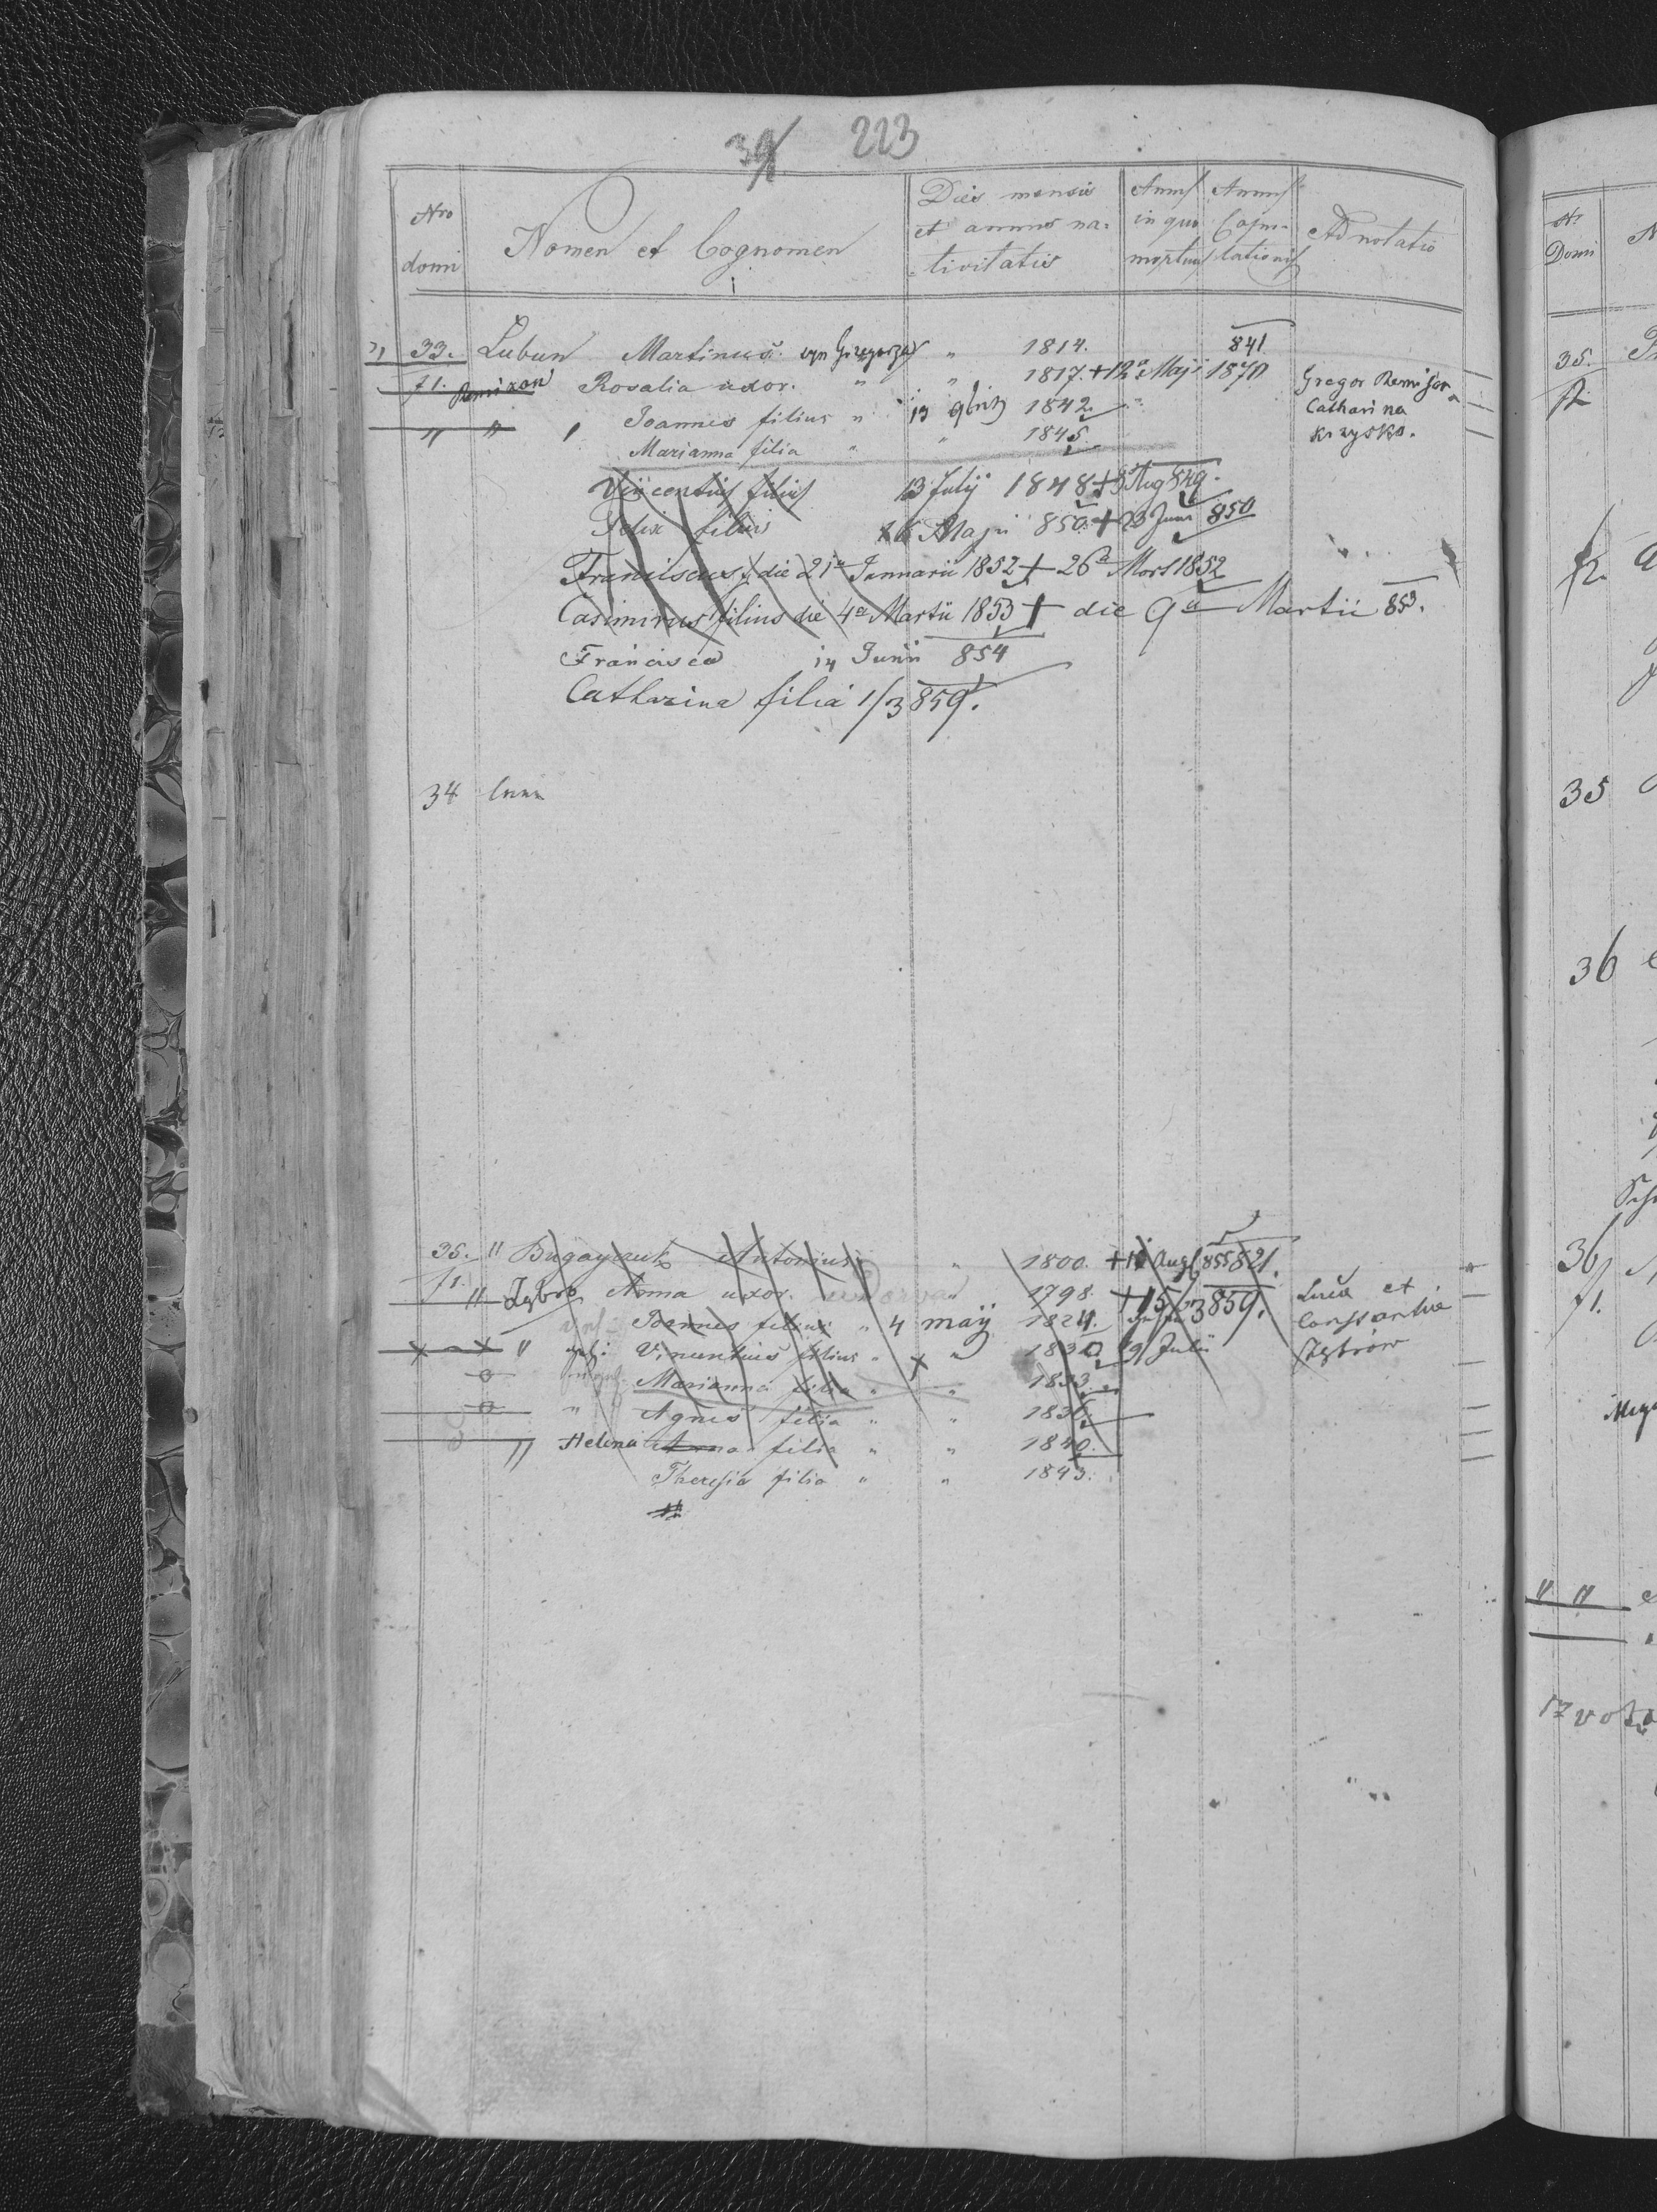 39 223
Nro domi Nomen et Cognomen Dies mensis et annus nativitatis Annus in quo mortuus Annus Copulationis Adnotatio
33. Lubun Martinus syn Grzegorza " 1814. 841
f1. Remizon Rosalia uxor. " " 1817. + 12a Maji 1870 Gregor Remison
" " Joannes filius " 13 9bris 1842 " Catharina
Marianna filia " " 1845. Krzysko.
Vincentius filius 13 Julij 1848 + 3 Aug 849.
Felix filius 16 Maji 850. + 23 Juni 850
Franciscus f. die 21a Januarii 1852 + 26a Mart 1852
Casimirus filius die 4a Martii 1853 + die 9a Martii 853.
Francisca 14 Junii 854
Catharina filia 1/3 859.
34
35. " Bugayczuk Antonius " 1800. + Aug 855 821.
f1. " Zybro Anna uxor. " 1798. + 15/3 859. Luca et
Joannes filius " 4 maij 1824. Constantia
" Vincentius filius " " 183 9 Julii Zybrow
Marianna filia " " 1833.
" Agnes filia " " 1836.
" Helena Anna filia " " 1840.
Theresia filia " " 1843.
Nr Domi
35.
f2.
f2.
35
36
36
f1.
" "